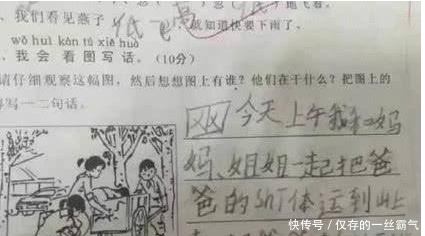 、我们看见燕子低飞 就知道快要下雨了、
wǒ huì kàn tú xiě huà
、我 会 看 图 写 话。(10分)
请仔细观察这幅图，然后想想图上有谁？他们在干什么？把图上的
写一二句话。
今天上午我和妈
妈、姐姐一起把爸
爸的shī体运到山上
快传号/仅存的一丝霸气